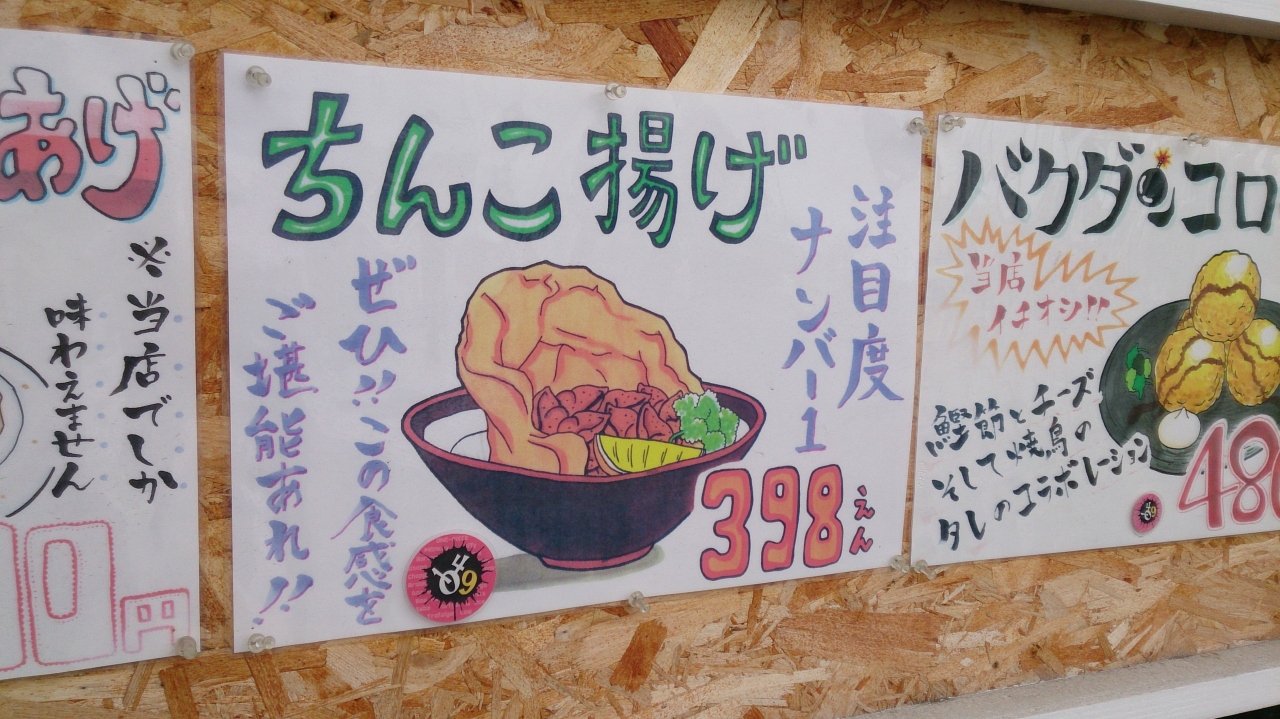 あげ
※当店でしか
味わえません
0円
ちんこ揚げ
注目度
ナンバー1
ぜひ!!この食感を
ご堪能あれ!!
398えん
バクダンコロ
当店
イチオシ!!
鰹節とチーズ
そして焼鳥の
タレのコラボレーション
48